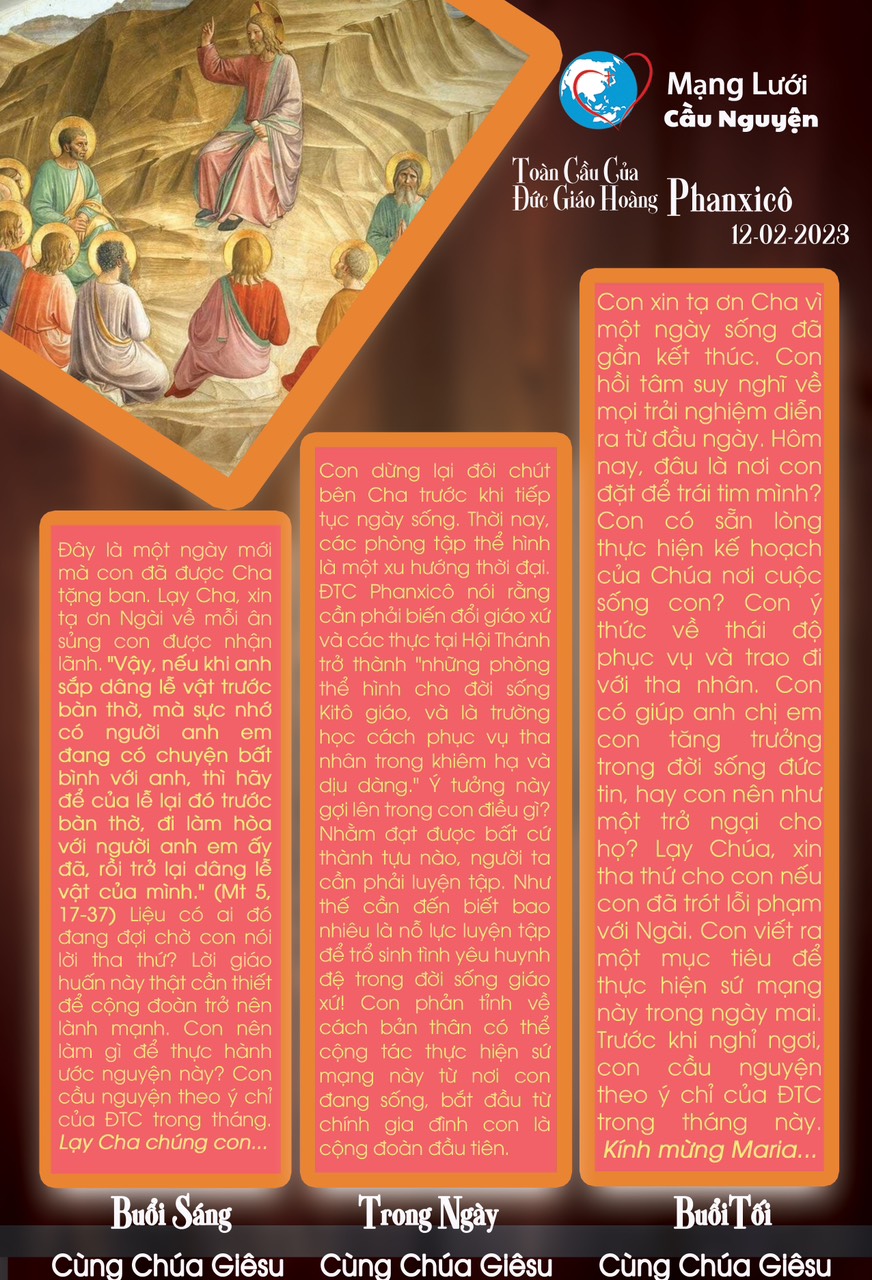 Mạng Lưới
Cầu Nguyện
Toàn Cầu Của
Đức Giáo Hoàng Phanxicô
12-02-2023
Đây là một ngày mới
mà con đã được Cha
tặng ban. Lạy Cha, xin
tạ ơn Ngài về mỗi ân
sủng con được nhận
lãnh. "Vậy, nếu khi anh
sắp dâng lễ vật trước
bàn thờ, mà sực nhớ
có người anh em
đang có chuyện bất
bình với anh, thì hãy
để của lễ lại đó trước
bàn thờ, đi làm hòa
với người anh em ấy
đã, rồi trở lại dâng lễ
vật của mình." (Mt 5,
17-37) Liệu có ai đó
đang đợi chờ con nói
lời tha thứ? Lời giáo
huấn này thật cần thiết
để cộng đoàn trở nên
lành mạnh. Con nên
làm gì để thực hành
ước nguyện này? Con
cầu nguyện theo ý chỉ
của ĐTC trong tháng.
Lạy Cha chúng con...
Buổi Sáng
Cùng Chúa Giêsu
Con dừng lại đôi chút
bên Cha trước khi tiếp
tục ngày sống. Thời nay,
các phòng tập thể hình
là một xu hướng thời đại.
ĐTC Phanxicô nói rằng
cần phải biến đổi giáo xứ
và các thực tại Hội Thánh
trở thành "những phòng
thể hình cho đời sống
Kitô giáo, và là trường
học cách phục vụ tha
nhân trong khiêm hạ và
dịu dàng." Ý tưởng này
gợi lên trong con điều gì?
Nhằm đạt được bất cứ
thành tựu nào, người ta
cần phải luyện tập. Như
thế cần đến biết bao
nhiêu là nỗ lực luyện tập
để trổ sinh tình yêu huynh
đệ trong đời sống giáo
xứ! Con phản tỉnh về
cách bản thân có thể
cộng tác thực hiện sứ
mạng này từ nơi con
đang sống, bắt đầu từ
chính gia đình con là
cộng đoàn đầu tiên.
Trong Ngày
Cùng Chúa Giêsu
Con xin tạ ơn Cha vì
một ngày sống đã
gần kết thúc. Con
hồi tâm suy nghĩ về
mọi trải nghiệm diễn
ra từ đầu ngày. Hôm
nay, đâu là nơi con
đặt để trái tim mình?
Con có sẵn lòng
thực hiện kế hoạch
của Chúa nơi cuộc
sống con? Con ý
thức về thái độ
phục vụ và trao đi
với tha nhân. Con
có giúp anh chị em
con tăng trưởng
trong đời sống đức
tin, hay con nên như
một trở ngại cho
họ? Lạy Chúa, xin
tha thứ cho con nếu
con đã trót lỗi phạm
với Ngài. Con viết ra
một mục tiêu để
thực hiện sứ mạng
này trong ngày mai.
Trước khi nghỉ ngơi,
con cầu nguyện
theo ý chỉ của ĐTC
trong tháng này.
Kính mừng Maria...
Buổi Tối
Cùng Chúa Giêsu